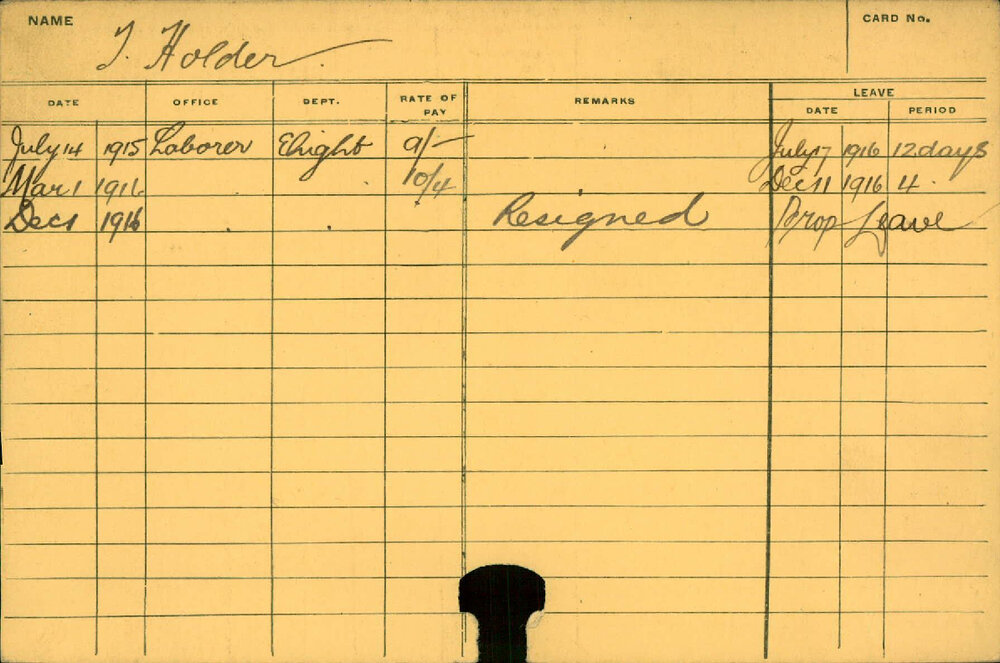 NAME T. Holder. CARD No.
LEAVE
DATE OFFICE DEPT. RATE OF PAY REMARKS DATE PERIOD
July 14 1915 Laborer Elight 9/- July 17 1916 12 days
Mar 1 1916 10/4 Dec 11 1916 4
Dec 1 1916 Resigned Prop Leave